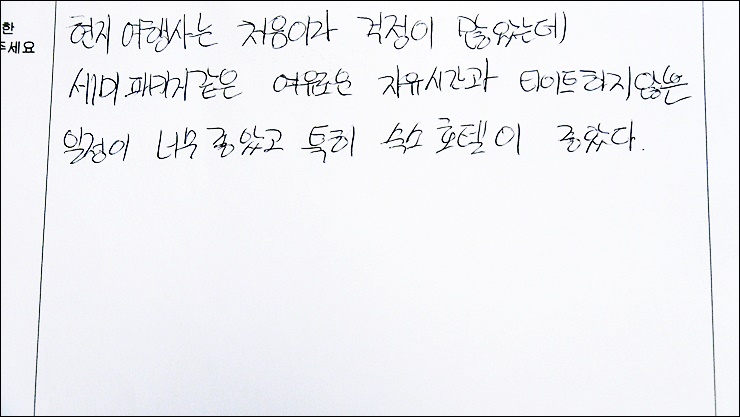 한
주세요
현지 여행사는 처음이라 걱정이 많았는데
세미패키지같은 여유로운 자유시간과 타이트하지않은
일정이 너무 좋았고 특히 숙소 호텔이 좋았다.